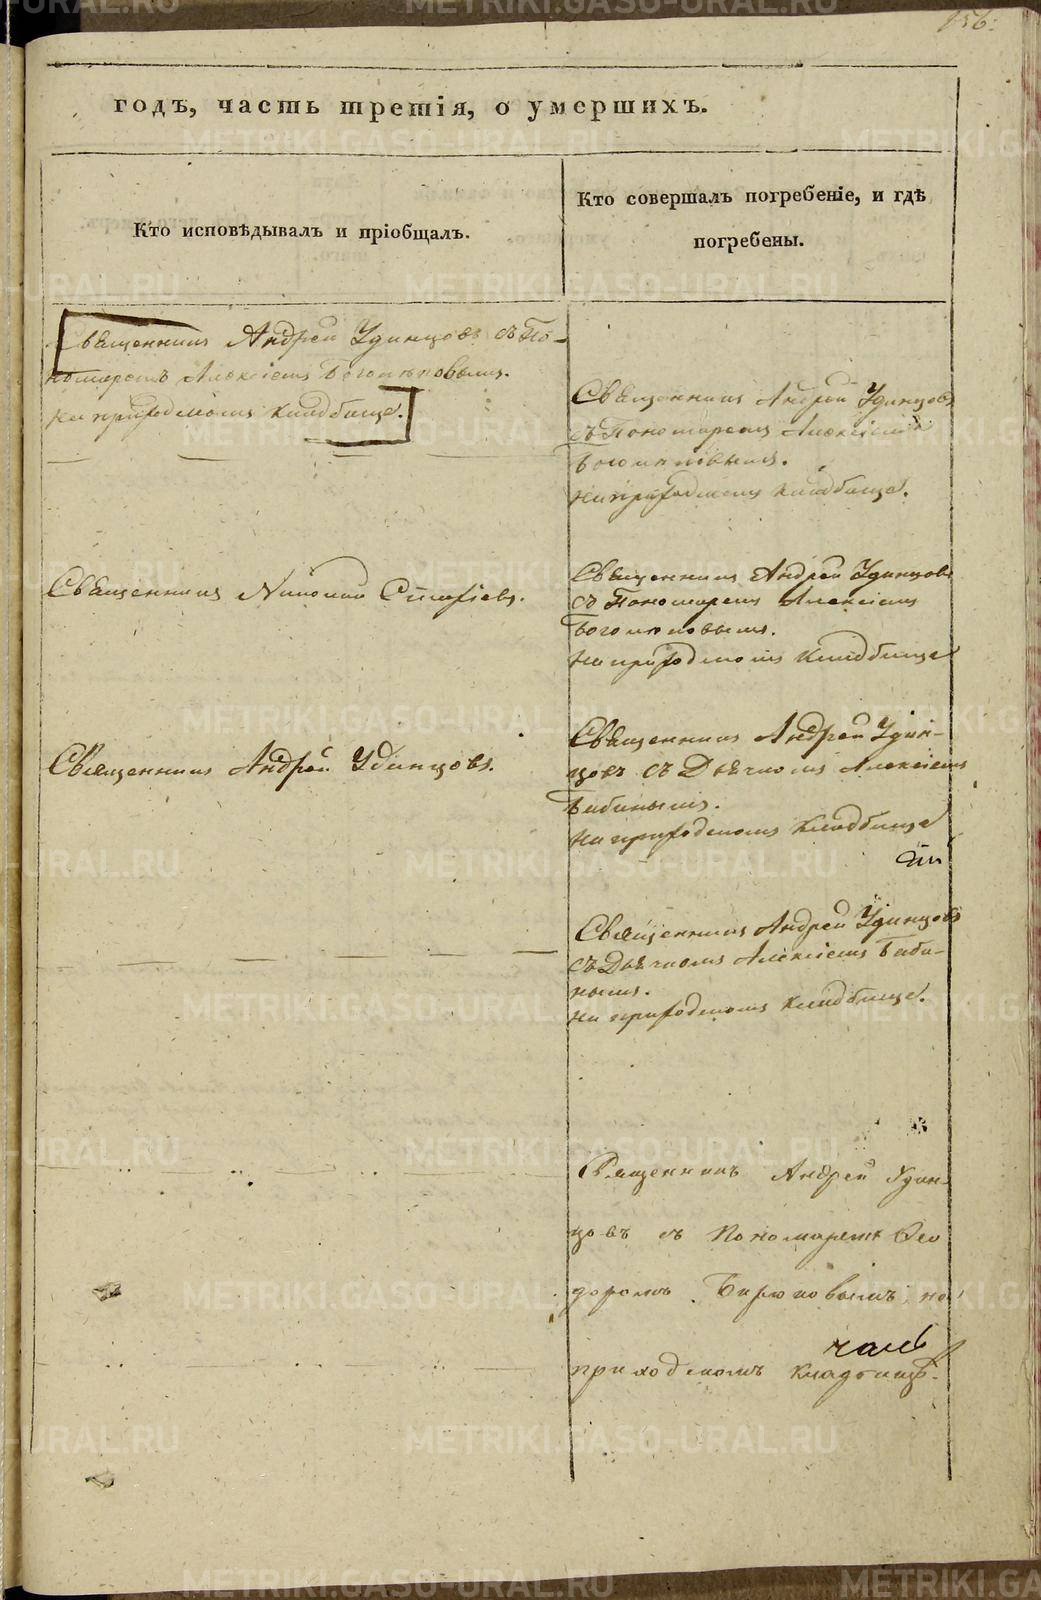 156.
годъ, часть третія, о умершихъ.
Кто исповѣдывалъ и пріобщалъ.
Кто совершалъ погребеніе, и гдѣ
погребены.
Священникъ Андрей Удинцовъ съ По-
номаремъ Алексіемъ
на приходскомъ кладбище.
Священникъ Андрей Удинцовъ
съ Пономаремъ Алексіемъ
на приходскомъ кладбище.
Священникъ Николай
Священникъ Андрей Удинцовъ
съ Пономаремъ Алексіемъ
на приходскомъ кладбище
Священникъ Андрей Удинцовъ.
Священникъ Андрей Удин-
цовъ съ Дьячкомъ Алексіемъ
Бабинымъ.
на приходскомъ кладбище
Священникъ Андрей Удинцовъ
съ Дьячкомъ Алексіемъ Баби-
нымъ.
на приходскомъ кладбище.
Священникъ Андрей Удин-
цовъ съ Пономаремъ Ѳео
доромъ Бирюковымъ, на
приходскомъ кладбищѣ.
METRIKI.GASO-URAL.RU